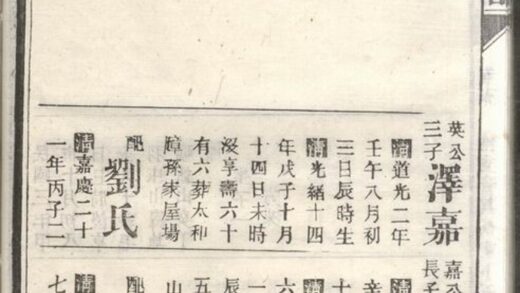 英公
三子
澤嘉
清道光二年
壬午八月初
三日辰時生
清光緒十四
年戊子十月
十四日未時
歿享壽六十
有六葬太和
障孫家屋場
配
劉氏
清嘉慶二十
一年丙子二
嘉公
長子
清
辛
十
清
六
一
辰
五
山
配
清
七